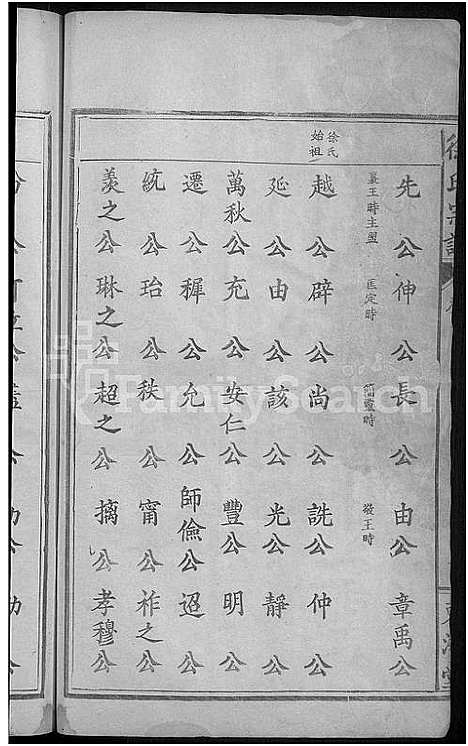 徐氏始祖
先公 伸公 長公 由公 章禹公
襄王時主盟 匡定時 簡靈時 發王時
越公 辟公 尚公 詵公 仲公
延公 由公 該公 光公 靜公
萬秋公 充公 安仁公 豐公 明公
遷公 穉公 允公 師儉公 迢公
統公 珆公 秩公 甯公 祚之公
羨之公 琳之公 超之公 摛公 孝穆公
FamilySearch